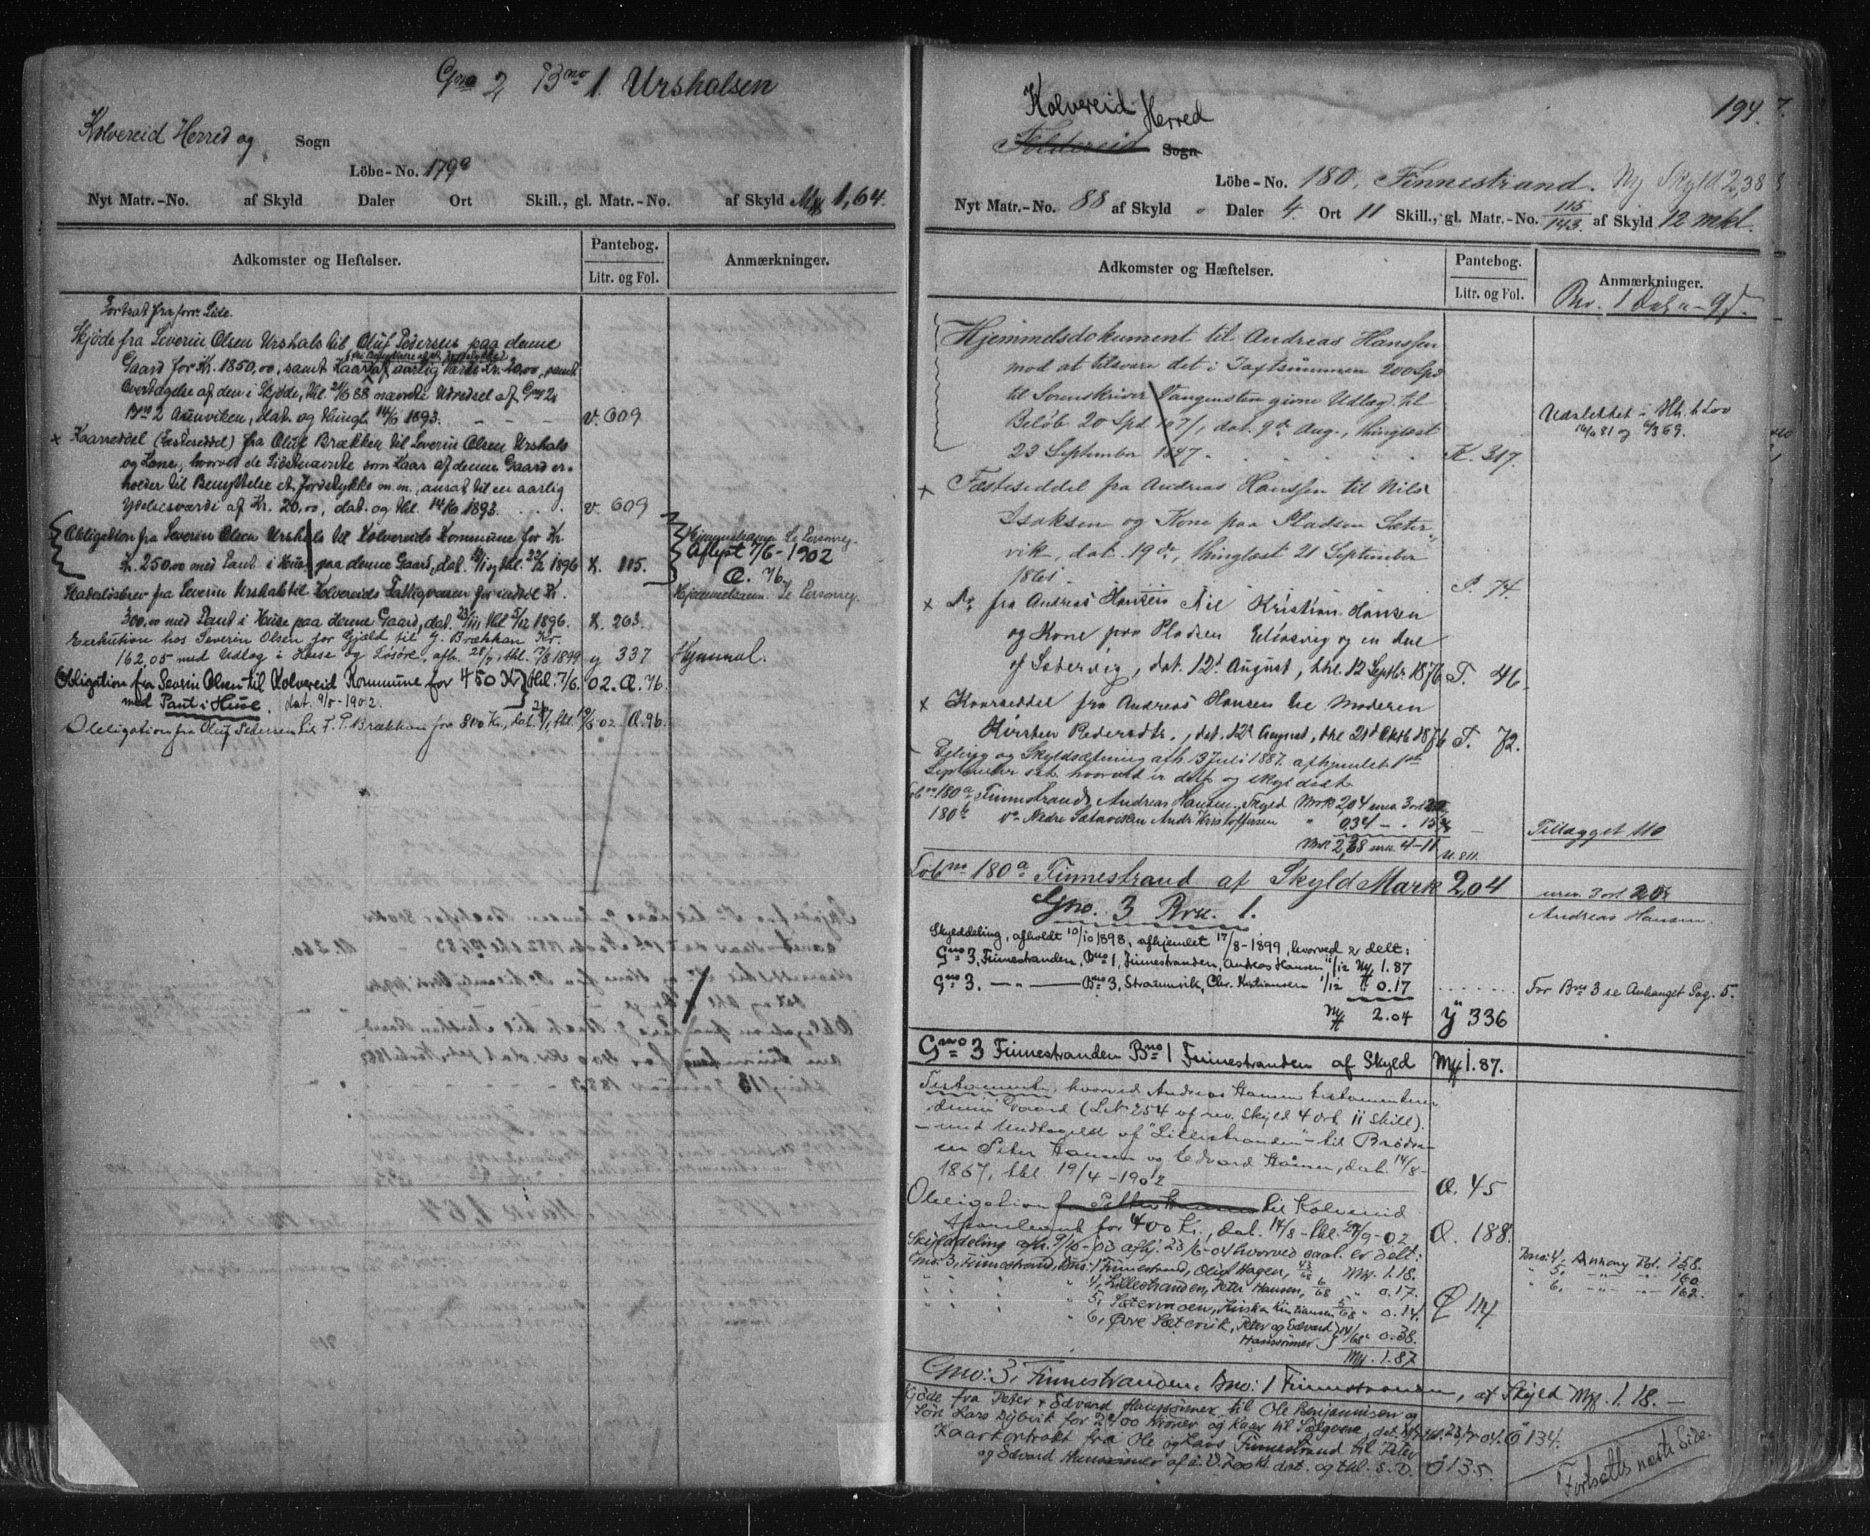 Gno 2 Bno 1. Urshalsen
Kolvereid Herred og Sogn
Löbe-No. 179a
Nyt Matr.-No. af Skyld Daler Ort Skill., gl. Matr.-No. af Skyld My 1,64.
Adkomster og Heftelser.
Pantebog.
Litr. og Fol.
Anmærkninger.
Fortsat fra forr. Side.
Skjøde fra Severin Olsen Urshals til Oluf Pedersen paa denne
Gaard for Kr. 1850,00, samt Kaar af aarlig Værdi Kr. 20,00, samt
Overdragelse af den i Skjøde, thl. 21/6 88 nævnte Udredsel af Gno 2
Bno 2 Aunviken, dat. og thingl. 14/6 1893. v. 609
x Kaarseddel (Fæsteseddel) fra Oluf Brækker til Severin Olsen Urshals
og Kone, hvorved de Sidstnævnte som Kaar af denne Gaard er-
holder til Benyttelse et Jordstykke m.m., ansat til en aarlig
Ydelsesværdi af Kr. 20,00, dat. og thl. 14/6 1893. v. 609
Obligation fra Severin Olsen Urshals til Kolvereids Kommune for Kr.
Kr. 250.00 med Pant i Huse paa denne Gaard, dat. og thl. 22/2 1896 X. 115.
Hjemmelsmn. Se Personreg.
Aflyst 7/6-1902
Q. 76.
Skadesløsbrev fra Severin Urshals til Kolvereids Fattigvæsen for indtil Kr.
300.00 med Pant i Huse paa denne Gaard, dat. 23/11 thl. 5/12 1896. X. 203. Hjemmelsmn. Se Personreg.
Exekution hos Severin Olsen for Gjeld til G. Brækkan Kr.
162,05 med Udlæg i Huse og Løsøre, afh. 28/7, thl. 17/8 1899 y 337 Hjemmel.
Obligation fra Severin Olsen til Kolvereid Kommune for 450 Kr. thl. 7/6. 02. Q. 76.
med Pant i Huse. dat. 9/5-1902.
Obligation fra Oluf Pedersen til F. P. Brækkan for 800 Kr., dat. thl. 19/6-02 Q. 96.
194.
Kolvereid Herred
Foldereid Sogn
Löbe-No. 180, Finnestrand. Ny Skyld 2,38
Nyt Matr.-No. 88 af Skyld " Daler 4 Ort 11 Skill., gl. Matr.-No. 115/143 af Skyld 12 mkl.
Adkomster og Hæftelser.
Pantebog.
Litr. og Fol.
Anmærkninger.
Hjemmelsdokument til Andreas Hanssen
mod at tilsvare det i Taxtsummen 200 Spd
til Sorenskriver Vangensten givne Udlæg til
Beløb 20 Spd 107/, dat. 9de Aug., thinglæst
23 September 1847. K. 317.
Udslettet
x Fæsteseddel fra Andreas Hanssen til Nils
Isaksen og Kone paa Pladsen Sæter-
vik, dat. 19de, thinglæst 21 September
1861. P. 74.
x Do fra Andreas Hansen til Kristian Hansen
og Kone paa Pladsen Eliasvig og en Del
af Sætervig, dat. 12te August, thl. 12 Septbr 1876 T. 46.
x Kaarseddel fra Andreas Hansen til Moderen
Kirsten Pedersdtr., dat. 12te August, thl. 21de Oktb 1876 T. 72.
Deling og Skyldsætning afh. 13 Juli 1887, afhjemlet 1ste
September s.A. hvorved er delt og skyldsat
Løbno 180a Finnestrand, Andreas Hansen, Skyld Mrk 2,04
180b Nedre Sætervik Andr. Kristoffersen " 0,34
Mrk 2,38 4-11 U. 811. Tillægget 110
Løbno 180a Finnestrand af Skyld Mark 2,04
Gno. 3 Bru. 1. Andreas Hansen.
Skylddeling, afholdt 10/10 1898, afhjemlet 17/8-1899, hvorved er delt:
Gno 3, Finnestranden, Bno 1, Finnestranden, Andreas Hansen 11/12 My. 1.87
Gno 3. — — Bno 3, Straumsvik, Chr. Kristiansen 1/12 " 0.17 For Bno 3 se Anhanget Pag. 5.
My 2.04 y 336
Gno 3 Finnestranden Bno 1 Finnestranden af Skyld My 1.87.
Testamente, hvorved Andreas Hansen testamenterer
denne Gaard (Lbn 254 af rev. Skyld 4 ort 11 Skill).
— med Undtagelse af "Lillestranden" — til Brødre-
ne Peter Hansen og Edvard Hansen, dat. 14/8-
1867, thl. 19/4-1902 Q. 45
Obligation fra Petter Hansen til Kolvereid
Sparebank for 400 Kr., dat. 14/8- thl. 29/9-02 Q. 188.
Skylddeling afh. 9/10-03 afhj. 23/6-04 hvorved saal. er delt:
Gno: 3, Finnestrand, Bno: 1 Finnestrand, Olia Hagen, 43/68 My. 1.18.
" " " 4, Lillestranden, Peter Hansen, 6/68 " 0.17.
" " " 5, Sætermoen, Kristian Kristiansen 5/68 " 0.14.
" " " 6, Øvre Sætervik, Peter og Edvard Hanssønner 14/68 " 0.38.
My. 1.87
Bno: 4, Anhang Pd. 158.
" 5, " " 160.
" 6, " " 162.
Gno: 3, Finnestranden, Bno: 1 Finnestranden, af Skyld My. 1.18.—
Skjøde fra Peter & Edvard Hanssønner til Ole Benjaminsen og
Søn Lars Dybvik for 2400 Kroner og Kaar til Sælgerne, Ö 134.
Kaarkontrakt fra Ole og Lars Finnestrand til Peter
og Edvard Hanssønner af á V. 200 Kr. dat. og thl. s. D. Ö 135.
Fortsættes næste Side.